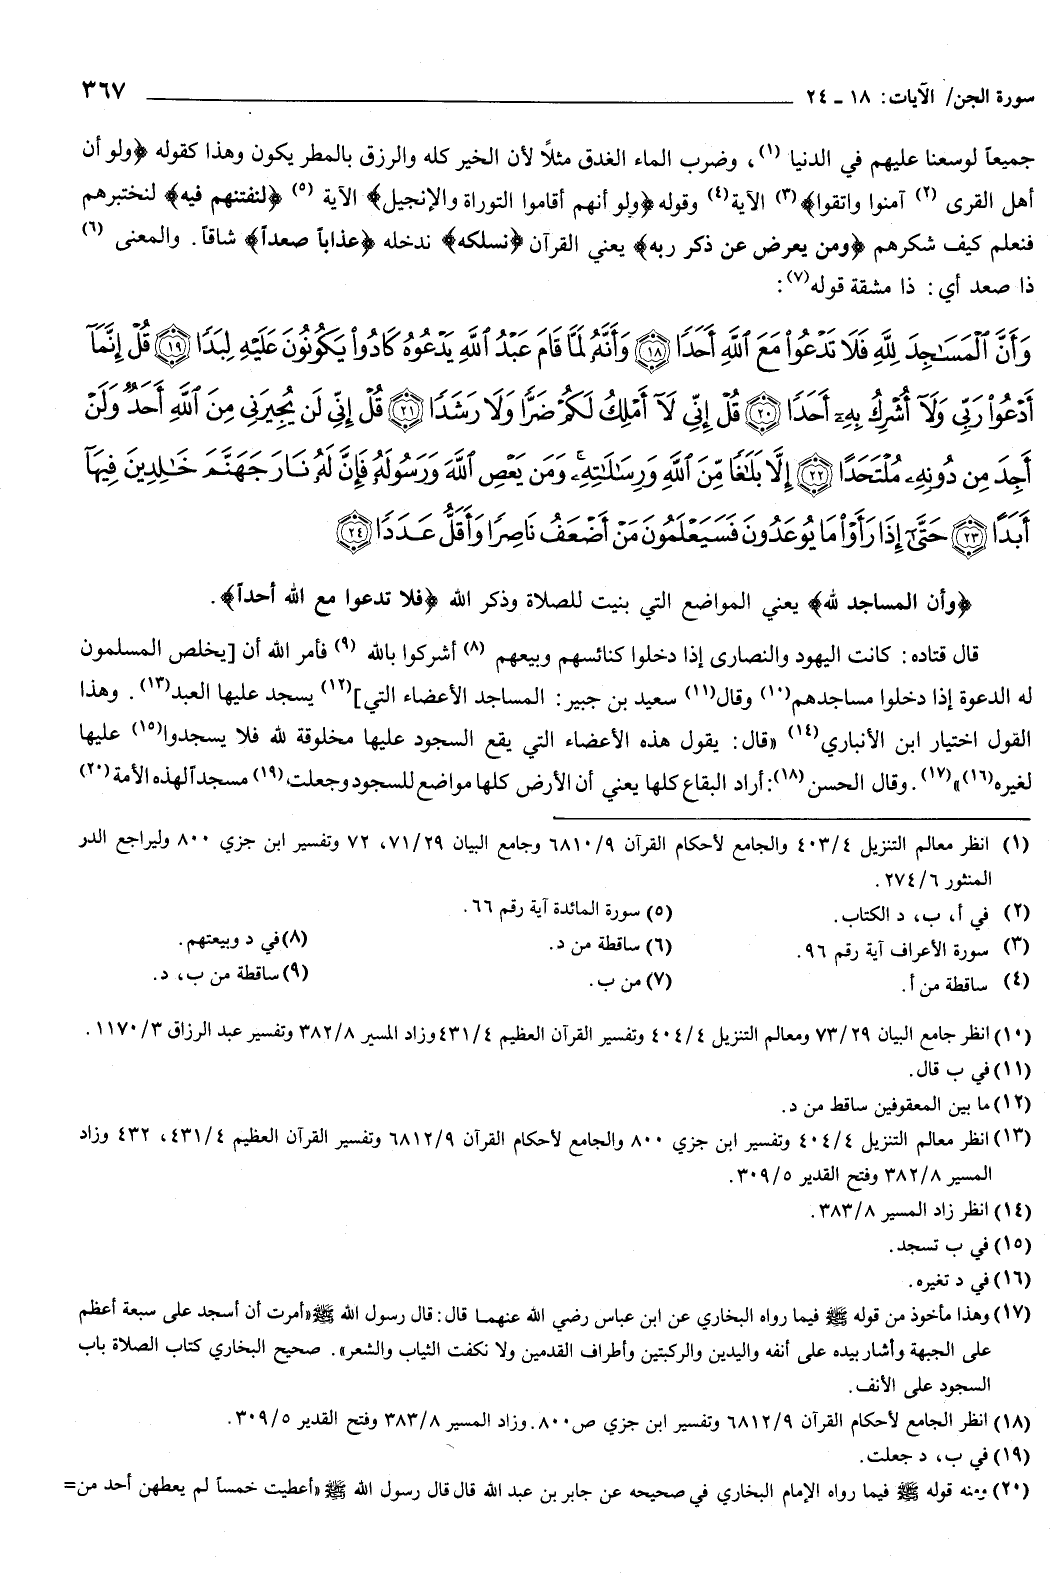 سورة الجن/ الآيات: ١٨ - ٢٤ ٣٦٧
جميعاً لوسعنا عليهم في الدنيا (١)، وضرب الماء الغدق مثلاً لأن الخير كله والرزق بالمطر يكون وهذا كقوله ﴿ولو أن
أهل القرى (٢) آمنوا واتقوا﴾(٣) الآية(٤) وقوله ﴿ولو أنهم أقاموا التوراة والإنجيل﴾ الآية (٥) ﴿لنفتنهم فيه﴾ لنختبرهم
فنعلم كيف شكرهم ﴿ومن يعرض عن ذكر ربه﴾ يعني القرآن ﴿نسلكه﴾ ندخله ﴿عذاباً صعداً﴾ شاقاً. والمعنى (٦)
ذا صعد أي: ذا مشقة قوله(٧):
وَأَنَّ ٱلْمَسَٰجِدَ لِلَّهِ فَلَا تَدْعُوا۟ مَعَ ٱللَّهِ أَحَدًا ١٨ وَأَنَّهُۥ لَمَّا قَامَ عَبْدُ ٱللَّهِ يَدْعُوهُ كَادُوا۟ يَكُونُونَ عَلَيْهِ لِبَدًا ١٩ قُلْ إِنَّمَآ
أَدْعُوا۟ رَبِّى وَلَآ أُشْرِكُ بِهِۦٓ أَحَدًا ٢٠ قُلْ إِنِّى لَآ أَمْلِكُ لَكُمْ ضَرًّا وَلَا رَشَدًا ٢١ قُلْ إِنِّى لَن يُجِيرَنِى مِنَ ٱللَّهِ أَحَدٌ وَلَنْ
أَجِدَ مِن دُونِهِۦ مُلْتَحَدًا ٢٢ إِلَّا بَلَٰغًا مِّنَ ٱللَّهِ وَرِسَٰلَٰتِهِۦ ۚ وَمَن يَعْصِ ٱللَّهَ وَرَسُولَهُۥ فَإِنَّ لَهُۥ نَارَ جَهَنَّمَ خَٰلِدِينَ فِيهَآ
أَبَدًا ٢٣ حَتَّىٰٓ إِذَا رَأَوْا۟ مَا يُوعَدُونَ فَسَيَعْلَمُونَ مَنْ أَضْعَفُ نَاصِرًا وَأَقَلُّ عَدَدًا ٢٤
﴿وأن المساجد لله﴾ يعني المواضع التي بنيت للصلاة وذكر الله ﴿فلا تدعوا مع الله أحداً﴾.
قال قتاده: كانت اليهود والنصارى إذا دخلوا كنائسهم وبيعهم (٨) أشركوا بالله (٩) فأمر الله أن [يخلص المسلمون
له الدعوة إذا دخلوا مساجدهم(١٠) وقال(١١) سعيد بن جبير: المساجد الأعضاء التي](١٢) يسجد عليها العبد(١٣). وهذا
القول اختيار ابن الأنباري(١٤) «قال: يقول هذه الأعضاء التي يقع السجود عليها مخلوقة لله فلا يسجدوا(١٥) عليها
لغيره(١٦)»(١٧). وقال الحسن (١٨): أراد البقاع كلها يعني أن الأرض كلها مواضع للسجود وجعلت(١٩) مسجداً لهذه الأمة (٢٠)
(١) انظر معالم التنزيل ٤/ ٤٠٣ والجامع لأحكام القرآن ٩/ ٦٨١٠ وجامع البيان ٢٩/ ٧١، ٧٢ وتفسير ابن جزي ٨٠٠ وليراجع الدر
المنثور ٦/ ٢٧٤.
(٢) في أ، ب، د الكتاب.
(٣) سورة الأعراف آية رقم ٩٦.
(٤) ساقطة من أ.
(٥) سورة المائدة آية رقم ٦٦.
(٦) ساقطة من د.
(٧) من ب.
(٨) في د وبيعتهم.
(٩) ساقطة من ب، د.
(١٠) انظر جامع البيان ٢٩/ ٧٣ ومعالم التنزيل ٤/ ٤٠٤ وتفسير القرآن العظيم ٤/ ٤٣١ وزاد المسير ٨/ ٣٨٢ وتفسير عبد الرزاق ٣/ ١١٧٠.
(١١) في ب قال.
(١٢) ما بين المعقوفين ساقط من د.
(١٣) انظر معالم التنزيل ٤/ ٤٠٤ وتفسير ابن جزي ٨٠٠ والجامع لأحكام القرآن ٩/ ٦٨١٢ وتفسير القرآن العظيم ٤/ ٤٣١، ٤٣٢ وزاد
المسير ٨/ ٣٨٢ وفتح القدير ٥/ ٣٠٩.
(١٤) انظر زاد المسير ٨/ ٣٨٣.
(١٥) في ب تسجد.
(١٦) في د تغيره.
(١٧) وهذا مأخوذ من قوله ﷺ فيما رواه البخاري عن ابن عباس رضي الله عنهما قال: قال رسول الله ﷺ «أمرت أن أسجد على سبعة أعظم
على الجبهة وأشار بيده على أنفه واليدين والركبتين وأطراف القدمين ولا نكفت الثياب والشعر». صحيح البخاري كتاب الصلاة باب
السجود على الأنف.
(١٨) انظر الجامع لأحكام القرآن ٩/ ٦٨١٢ وتفسير ابن جزي ص٨٠٠. وزاد المسير ٨/ ٣٨٣ وفتح القدير ٥/ ٣٠٩.
(١٩) في ب، د جعلت.
(٢٠) ومنه قوله ﷺ فيما رواه الإمام البخاري في صحيحه عن جابر بن عبد الله قال قال رسول الله ﷺ «أعطيت خمساً لم يعطهن أحد من=